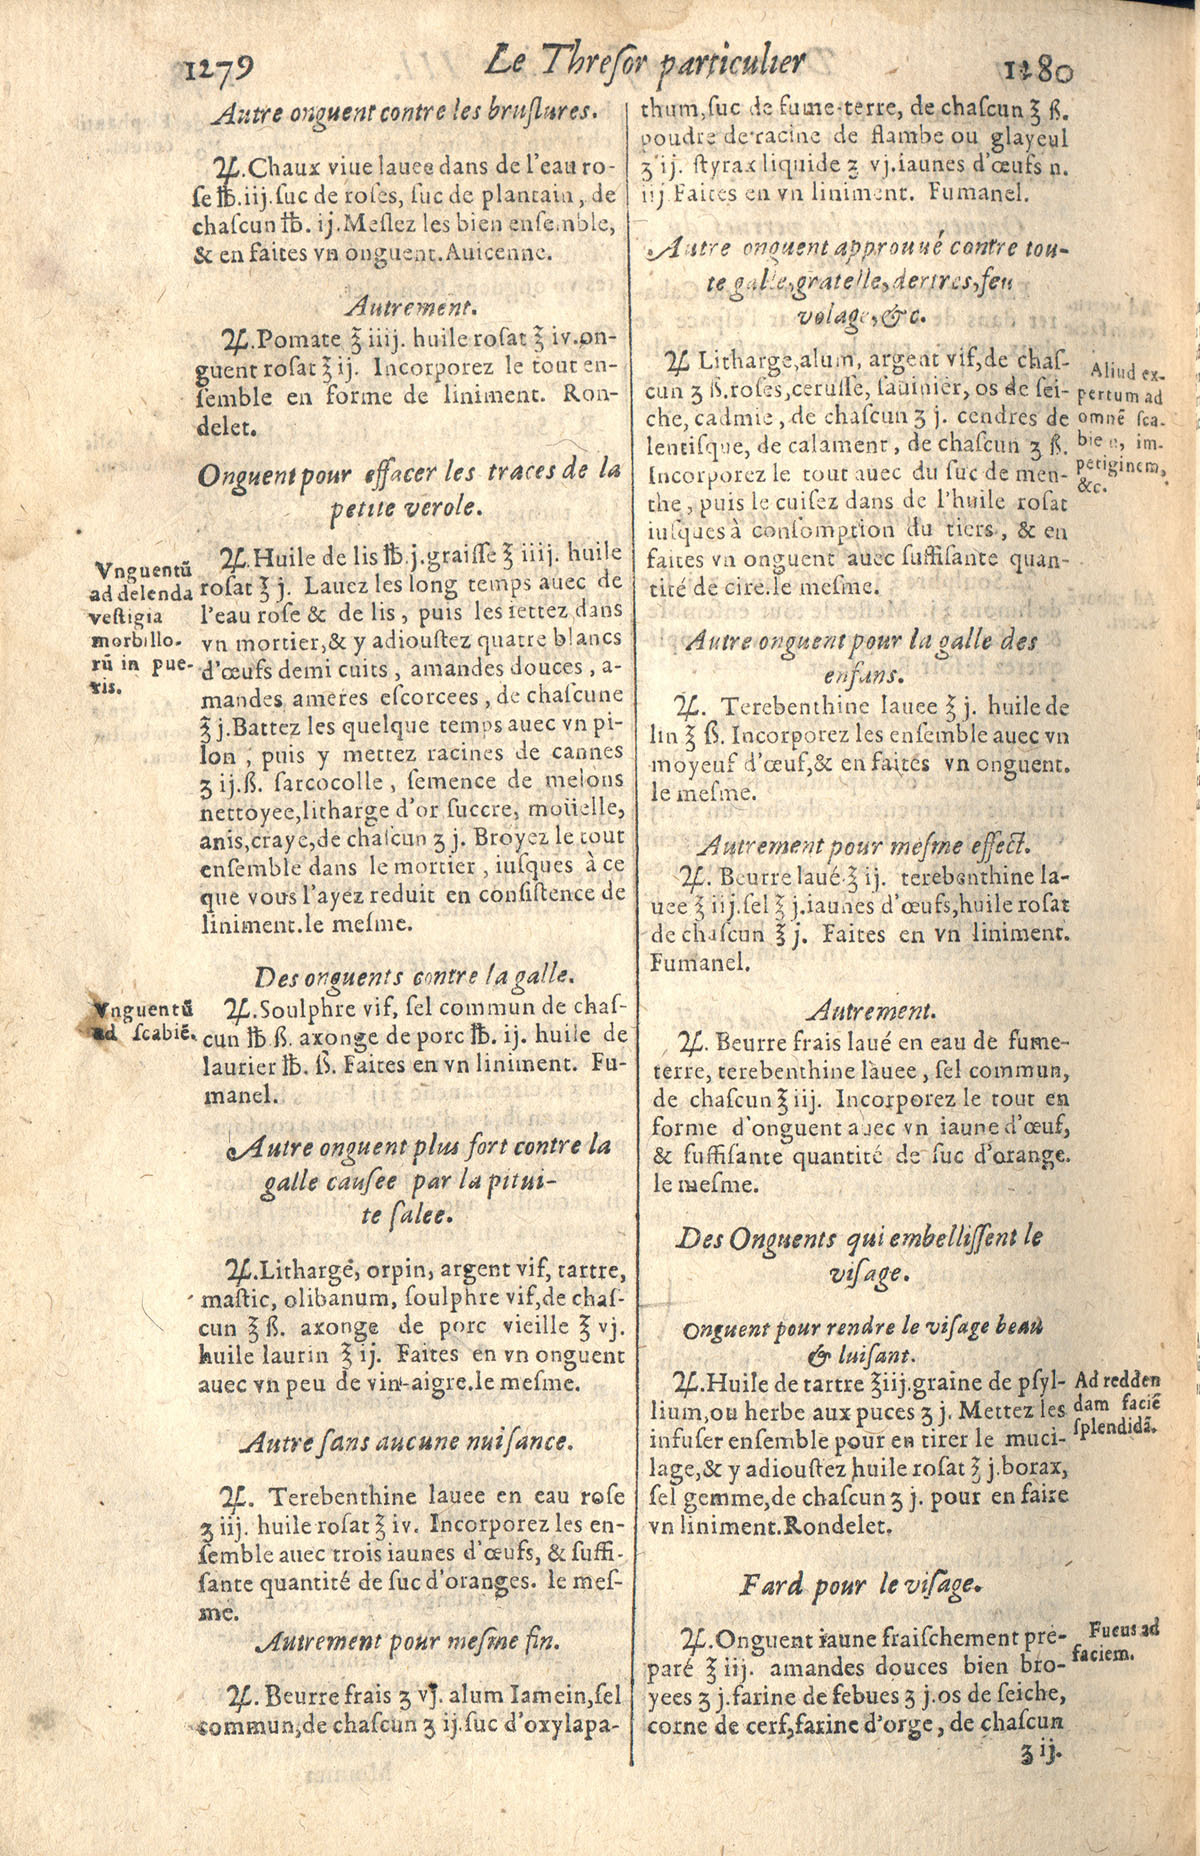 1279
Le Thresor particulier
1280
Autre onguent contre les bruslures.
♃.Chaux viue lauee dans de l'eau ro-
se ℔.iij.suc de roses, suc de plantain, de
chascun ℔. ij.Meslez les bien ensemble,
& en faites vn onguent.Auicenne.
Autrement.
♃.Pomate ℥ iiij. huile rosat ℥ iv.on-
guent rosat ℥ ij. Incorporez le tout en-
semble en forme de liniment. Ron-
delet.
Onguent pour effacer les traces de la
petite verole.
Vnguentū
ad delenda
vestigia
morbillo-
rū in pue-
ris.
♃.Huile de lis ℔.j.graisse ℥ iiij. huile
rosat ℥ j. Lauez les long temps auec de
l'eau rose & de lis, puis les iettez dans
vn mortier,& y adioustez quatre blancs
d'œufs demi cuits, amandes douces, a-
mandes ameres escorcees, de chascune
℥ j.Battez les quelque temps auec vn pi-
lon, puis y mettez racines de cannes
ʒ ij.ß. sarcocolle, semence de melons
nettoyee,litharge d'or succre, moüelle,
anis,craye,de chascun ʒ j. Broyez le tout
ensemble dans le mortier, iusques à ce
que vous l'ayez reduit en consistence de
liniment.le mesme.
Des onguents contre la galle.
Vnguentū
ad scabiē.
♃.Soulphre vif, sel commun de chas-
cun ℔ ß. axonge de porc ℔. ij. huile de
laurier ℔. ß. Faites en vn liniment. Fu-
manel.
Autre onguent plus fort contre la
galle causee par la pitui-
te salee.
♃.Lithargé, orpin, argent vif, tartre,
mastic, olibanum, soulphre vif,de chas-
cun ℥ ß. axonge de porc vieille ℥ vj.
huile laurin ℥ ij. Faites en vn onguent
auec vn peu de vin-aigre.le mesme.
Autre sans aucune nuisance.
♃. Terebenthine lauee en eau rose
ʒ iij. huile rosat ℥ iv. Incorporez les en-
semble auec trois iaunes d'œufs, & suffi-
sante quantité de suc d'oranges. le mes-
me.
Autrement pour mesme fin.
♃. Beurre frais ʒ vj. alum Iamein,sel
commun,de chascun ʒ ij.suc d'oxylapa-
thum,suc de fume-terre, de chascun ʒ ß.
poudre de racine de flambe ou glayeul
ʒ ij. styrax liquide ʒ vj.iaunes d'œufs n.
iij Faites en vn liniment. Fumanel.
Autre onguent approuué contre tou-
te galle,gratelle,dertres,feu
volage,&c.
♃ Litharge,alum, argent vif,de chas-
cun ʒ ß.roses,cerusse, sauinier, os de sei-
che, cadmie, de chascun ʒ j. cendres de
lentisque, de calament, de chascun ʒ ß.
Incorporez le tout auec du suc de men-
the, puis le cuisez dans de l'huile rosat
iusques à consomption du tiers, & en
faites vn onguent auec suffisante quan-
tité de cire.le mesme.
Aliud ex-
pertum ad
omnē sca-
biem, im-
petiginem,
&c.
Autre onguent pour la galle des
enfans.
♃. Terebenthine lauee ℥ j. huile de
lin ℥ ß. Incorporez les ensemble auec vn
moyeuf d'œuf,& en faites vn onguent.
le mesme.
Autrement pour mesme effect.
♃. Beurre laué ℥ ij. terebenthine la-
uee ℥ iij.sel ℥ j.iaunes d'œufs,huile rosat
de chascun ℥ j. Faites en vn liniment.
Fumanel.
Autrement.
♃. Beurre frais laué en eau de fume-
terre, terebenthine lauee, sel commun,
de chascun ℥ iij. Incorporez le tout en
forme d'onguent auec vn iaune d'œuf,
& suffisante quantité de suc d'orange.
le mesme.
Des Onguents qui embellissent le
visage.
Onguent pour rendre le visage beau
& luisant.
♃.Huile de tartre ℥iij.graine de psyl-
lium,ou herbe aux puces ʒ j. Mettez les
infuser ensemble pour en tirer le muci-
lage,& y adioustez huile rosat ℥ j.borax,
sel gemme,de chascun ʒ j. pour en faire
vn liniment.Rondelet.
Ad redden
dam faciē
splendidā.
Fard pour le visage.
♃.Onguent iaune fraischement pre-
paré ℥ iij. amandes douces bien bro-
yees ʒ j.farine de febues ʒ j.os de seiche,
corne de cerf,farine d'orge, de chascun
ʒ ij.
Fucus ad
faciem.